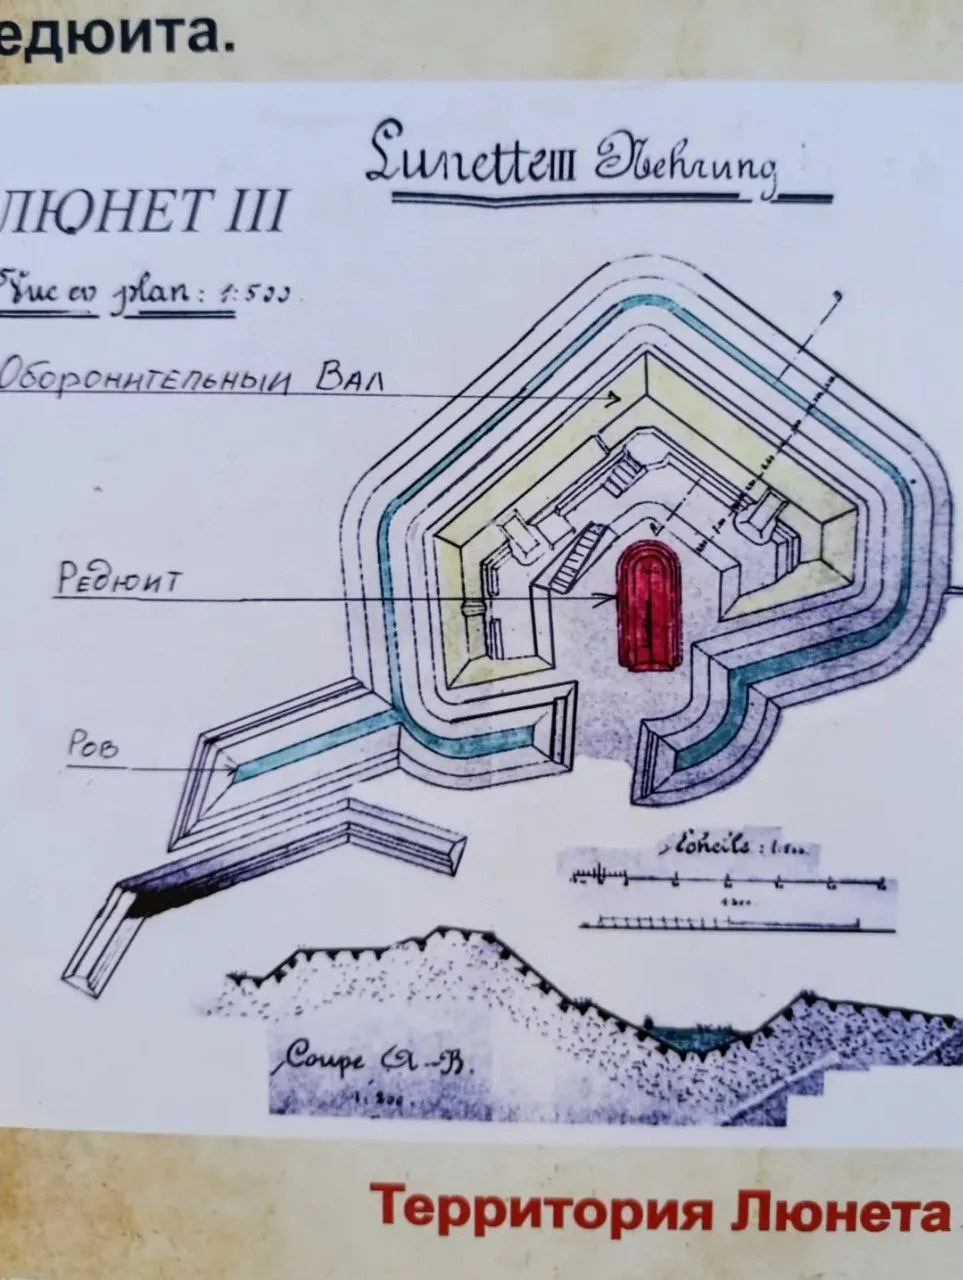 едюита.
Lunette III Nehrung
ЛЮНЕТ III
Vue en plan: 1:500.
Оборонительный Вал
Редюит
Ров
1:500
Coupe A-B.
1:200.
Территория Люнета